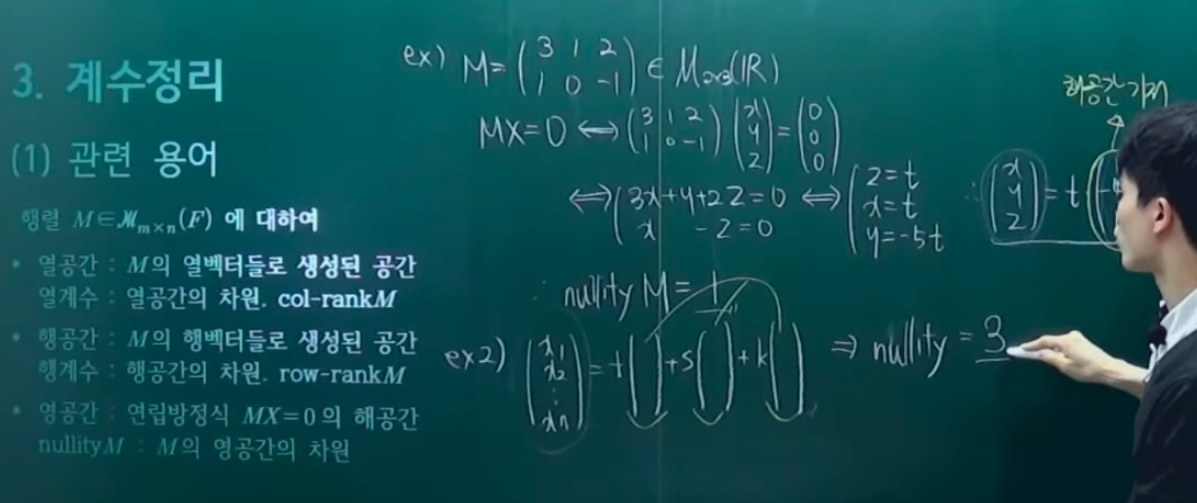 3. 계수정리
(1) 관련 용어
행렬 M∈ℳₘₓₙ(F) 에 대하여
• 열공간 : M의 열벡터들로 생성된 공간
열계수 : 열공간의 차원. col-rankM
• 행공간 : M의 행벡터들로 생성된 공간
행계수 : 행공간의 차원. row-rankM
• 영공간 : 연립방정식 MX=0의 해공간
nullityM : M의 영공간의 차원
ex) M= (3 1 2
1 0 -1) ∈ M₂ₓ₃(ℝ)
MX=0 ⟺ (3 1 2
1 0 -1) (x
y
z) = (0
0
0)
⟺ (3x+y+2z=0
x -z=0 ⟺ (z=t
x=t
y=-5t
해공간 기저
∴ (x
y
z) = t
∴ nullity M = 1
ex2) (x₁
x₂
⋮
xn) = t( ) +s( ) +k( ) ⇒ nullity = 3